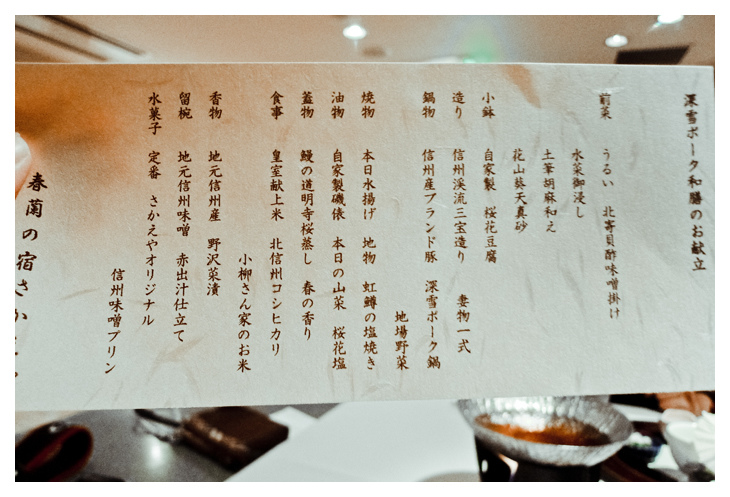 深雪ポーク和膳のお献立
前菜 うるい 北寄貝酢味噌掛け
水菜御浸し
土筆胡麻和え
花山葵天真砂
小鉢 自家製 桜花豆腐
造り 信州渓流三宝造り 妻物一式
鍋物 信州産ブランド豚 深雪ポーク鍋
地場野菜
焼物 本日水揚げ 地物 虹鱒の塩焼き
油物 自家製磯俵 本日の山菜 桜花塩
蓋物 鰻の道明寺桜蒸し 春の香り
食事 皇室献上米 北信州コシヒカリ
小柳さん家のお米
香物 地元信州産 野沢菜漬
留椀 地元信州味噌 赤出汁仕立て
水菓子 定番 さかえやオリジナル
信州味噌プリン
春蘭の宿さかえや